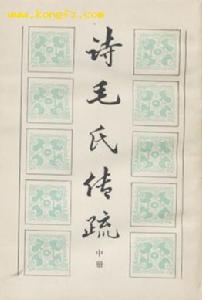 www.kongfz.com
诗毛氏传疏
中册